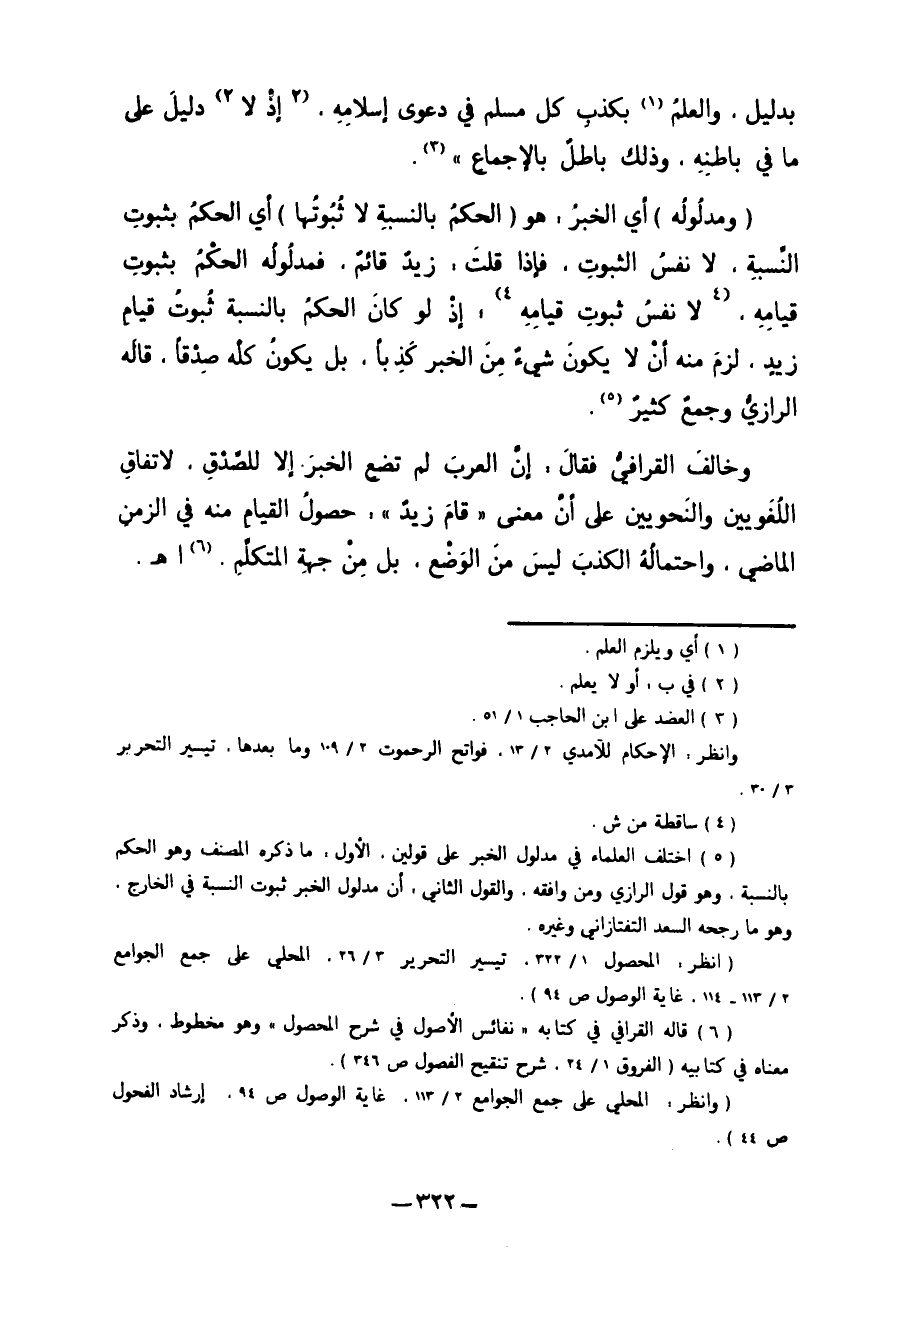 بدليل ، والعلمُ (١) بكذبِ كل مسلم في دعوى إسلامِهِ ، (٢ إذْ لا ٢) دليلَ على
ما في باطنِهِ ، وذلك باطلٌ بالإجماع » (٣) .
( ومدلُولُه ) أي الخبرُ : هو ( الحكمُ بالنسبةِ لا ثُبُوتُها ) أي الحكمُ بثبوتِ
النَّسبةِ ، لا نفسُ الثبوتِ ، فإذا قلتَ : زيدٌ قائمٌ ، فمدلُولُه الحكْمُ بثبوتِ
قيامِهِ ، (٤ لا نفسُ ثبوتِ قيامِهِ ٤) ؛ إذْ لو كانَ الحكمُ بالنسبة ثُبوتُ قيامِ
زيدٍ ، لزمَ منه أنْ لا يكونَ شيءٌ مِنَ الخبر كَذِباً ، بل يكونُ كلُه صدْقاً ، قالَه
الرازيُّ وجمعٌ كثيرٌ (٥) .
وخالفَ القرافيُّ فقالَ : إنَّ العربَ لم تضع الخبرَ إلا للصَّدْقِ ، لاتفاقِ
اللُغَويين والنَحويين على أنَّ معنى « قامَ زيدٌ » : حصولُ القيامِ منه في الزمنِ
الماضي ، واحتمالُهُ الكذبَ ليسَ منَ الوَضْع ، بل مِنْ جهةِ المتكلَّمِ . (٦) ا هـ .
( ١ ) أي ويلزم العلم .
( ٢ ) في ب : أو لا يعلم .
( ٣ ) العضد على ابن الحاجب ١ / ٥١ .
وانظر : الإحكام للآمدي ٢ / ١٣ ، فواتح الرحموت ٢ / ١٠٩ وما بعدها ، تيسير التحرير
٣ / ٣٠ .
( ٤ ) ساقطة من ش .
( ٥ ) اختلف العلماء في مدلول الخبر على قولين ، الأول : ما ذكره المصنف وهو الحكم
بالنسبة ، وهو قول الرازي ومن وافقه ، والقول الثاني : أن مدلول الخبر ثبوت النسبة في الخارج ،
وهو ما رجحه السعد التفتازاني وغيره .
( انظر : المحصول ١ / ٣٢٢ ، تيسير التحرير ٣ / ٢٦ ، المحلي على جمع الجوامع
٢ / ١١٣ ـ ١١٤ ، غاية الوصول ص ٩٤ ) .
( ٦ ) قاله القرافي في كتابه « نفائس الأصول في شرح المحصول » وهو مخطوط ، وذكر
معناه في كتابيه ( الفروق ١ / ٢٤ ، شرح تنقيح الفصول ص ٣٤٦ ) .
( وانظر : المحلي على جمع الجوامع ٢ / ١١٣ ، غاية الوصول ص ٩٤ ، إرشاد الفحول
ص ٤٤ ) .
ـ ٣٢٢ ـ